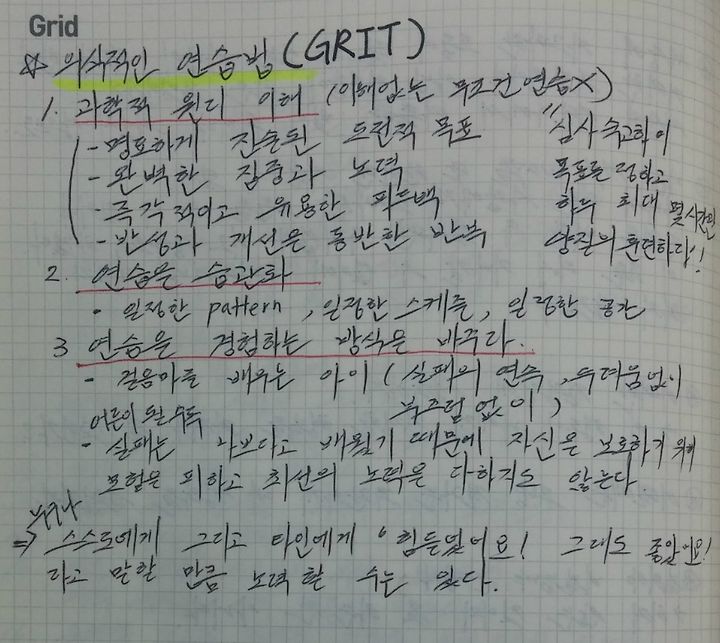 Grid
☆ 의식적인 연습법 (GRIT)
1. 과학적 원리 이해 (이해없는 무조건 연습X)
- 명료하게 진술된 도전적 목표 "심사숙고하여
- 완벽한 집중과 노력 목표를 정하고
- 즉각적이고 유용한 피드백 하루 최대 몇시간만
- 반성과 개선을 동반한 반복 양질의 훈련하라!
2. 연습을 습관화
- 일정한 pattern, 일정한 스케줄, 일정한 공간
3 연습을 경험하는 방식을 바꾸다.
- 걸음마를 배우는 아이 (실패의 연속, 두려움없이
부끄럼 없이)
어른이 될수록
- 실패는 나쁘다고 배웠기 때문에 자신을 보호하기 위해
모험을 피하고 최선의 노력을 다하지도 않는다.
누구나
⇒ 스스로에게 그리고 타인에게 '힘들었어요! 그래도 좋았어요!
라고 말할 만큼 노력할 수는 있다.